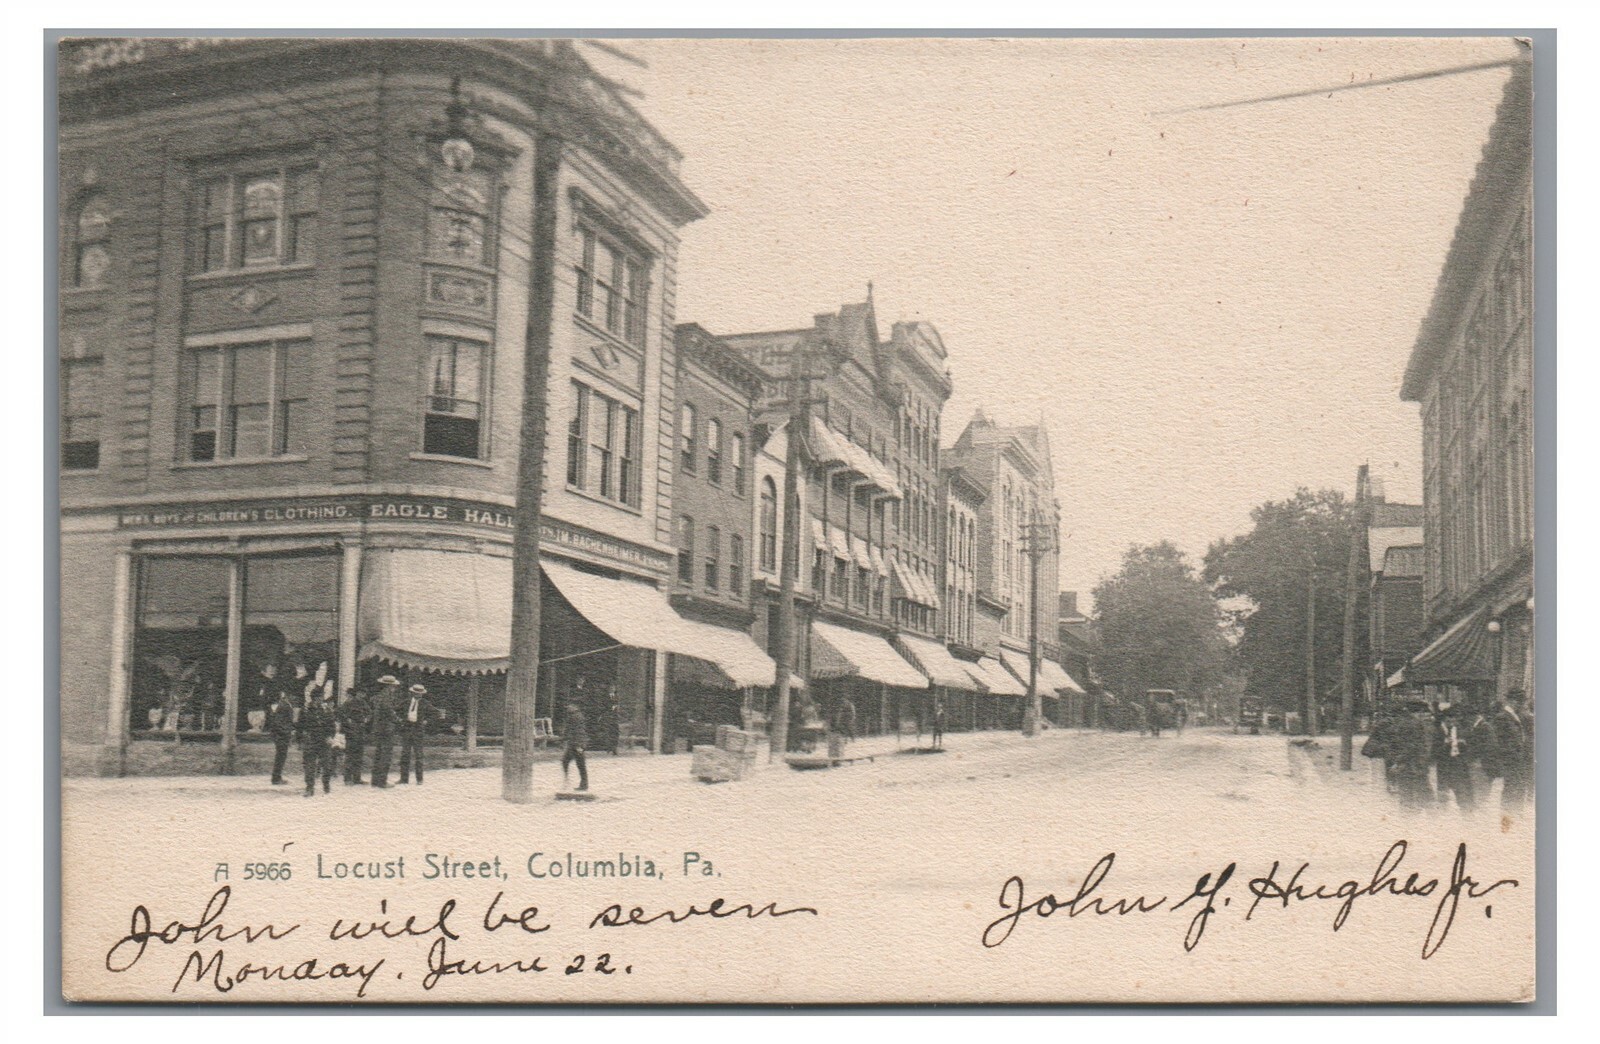 MEN'S BOYS AND CHILDREN'S CLOTHING. EAGLE HALL
A 5966 Locust Street, Columbia, Pa.
John will be seven
Monday. June 22.
John Y. Hughes Jr.